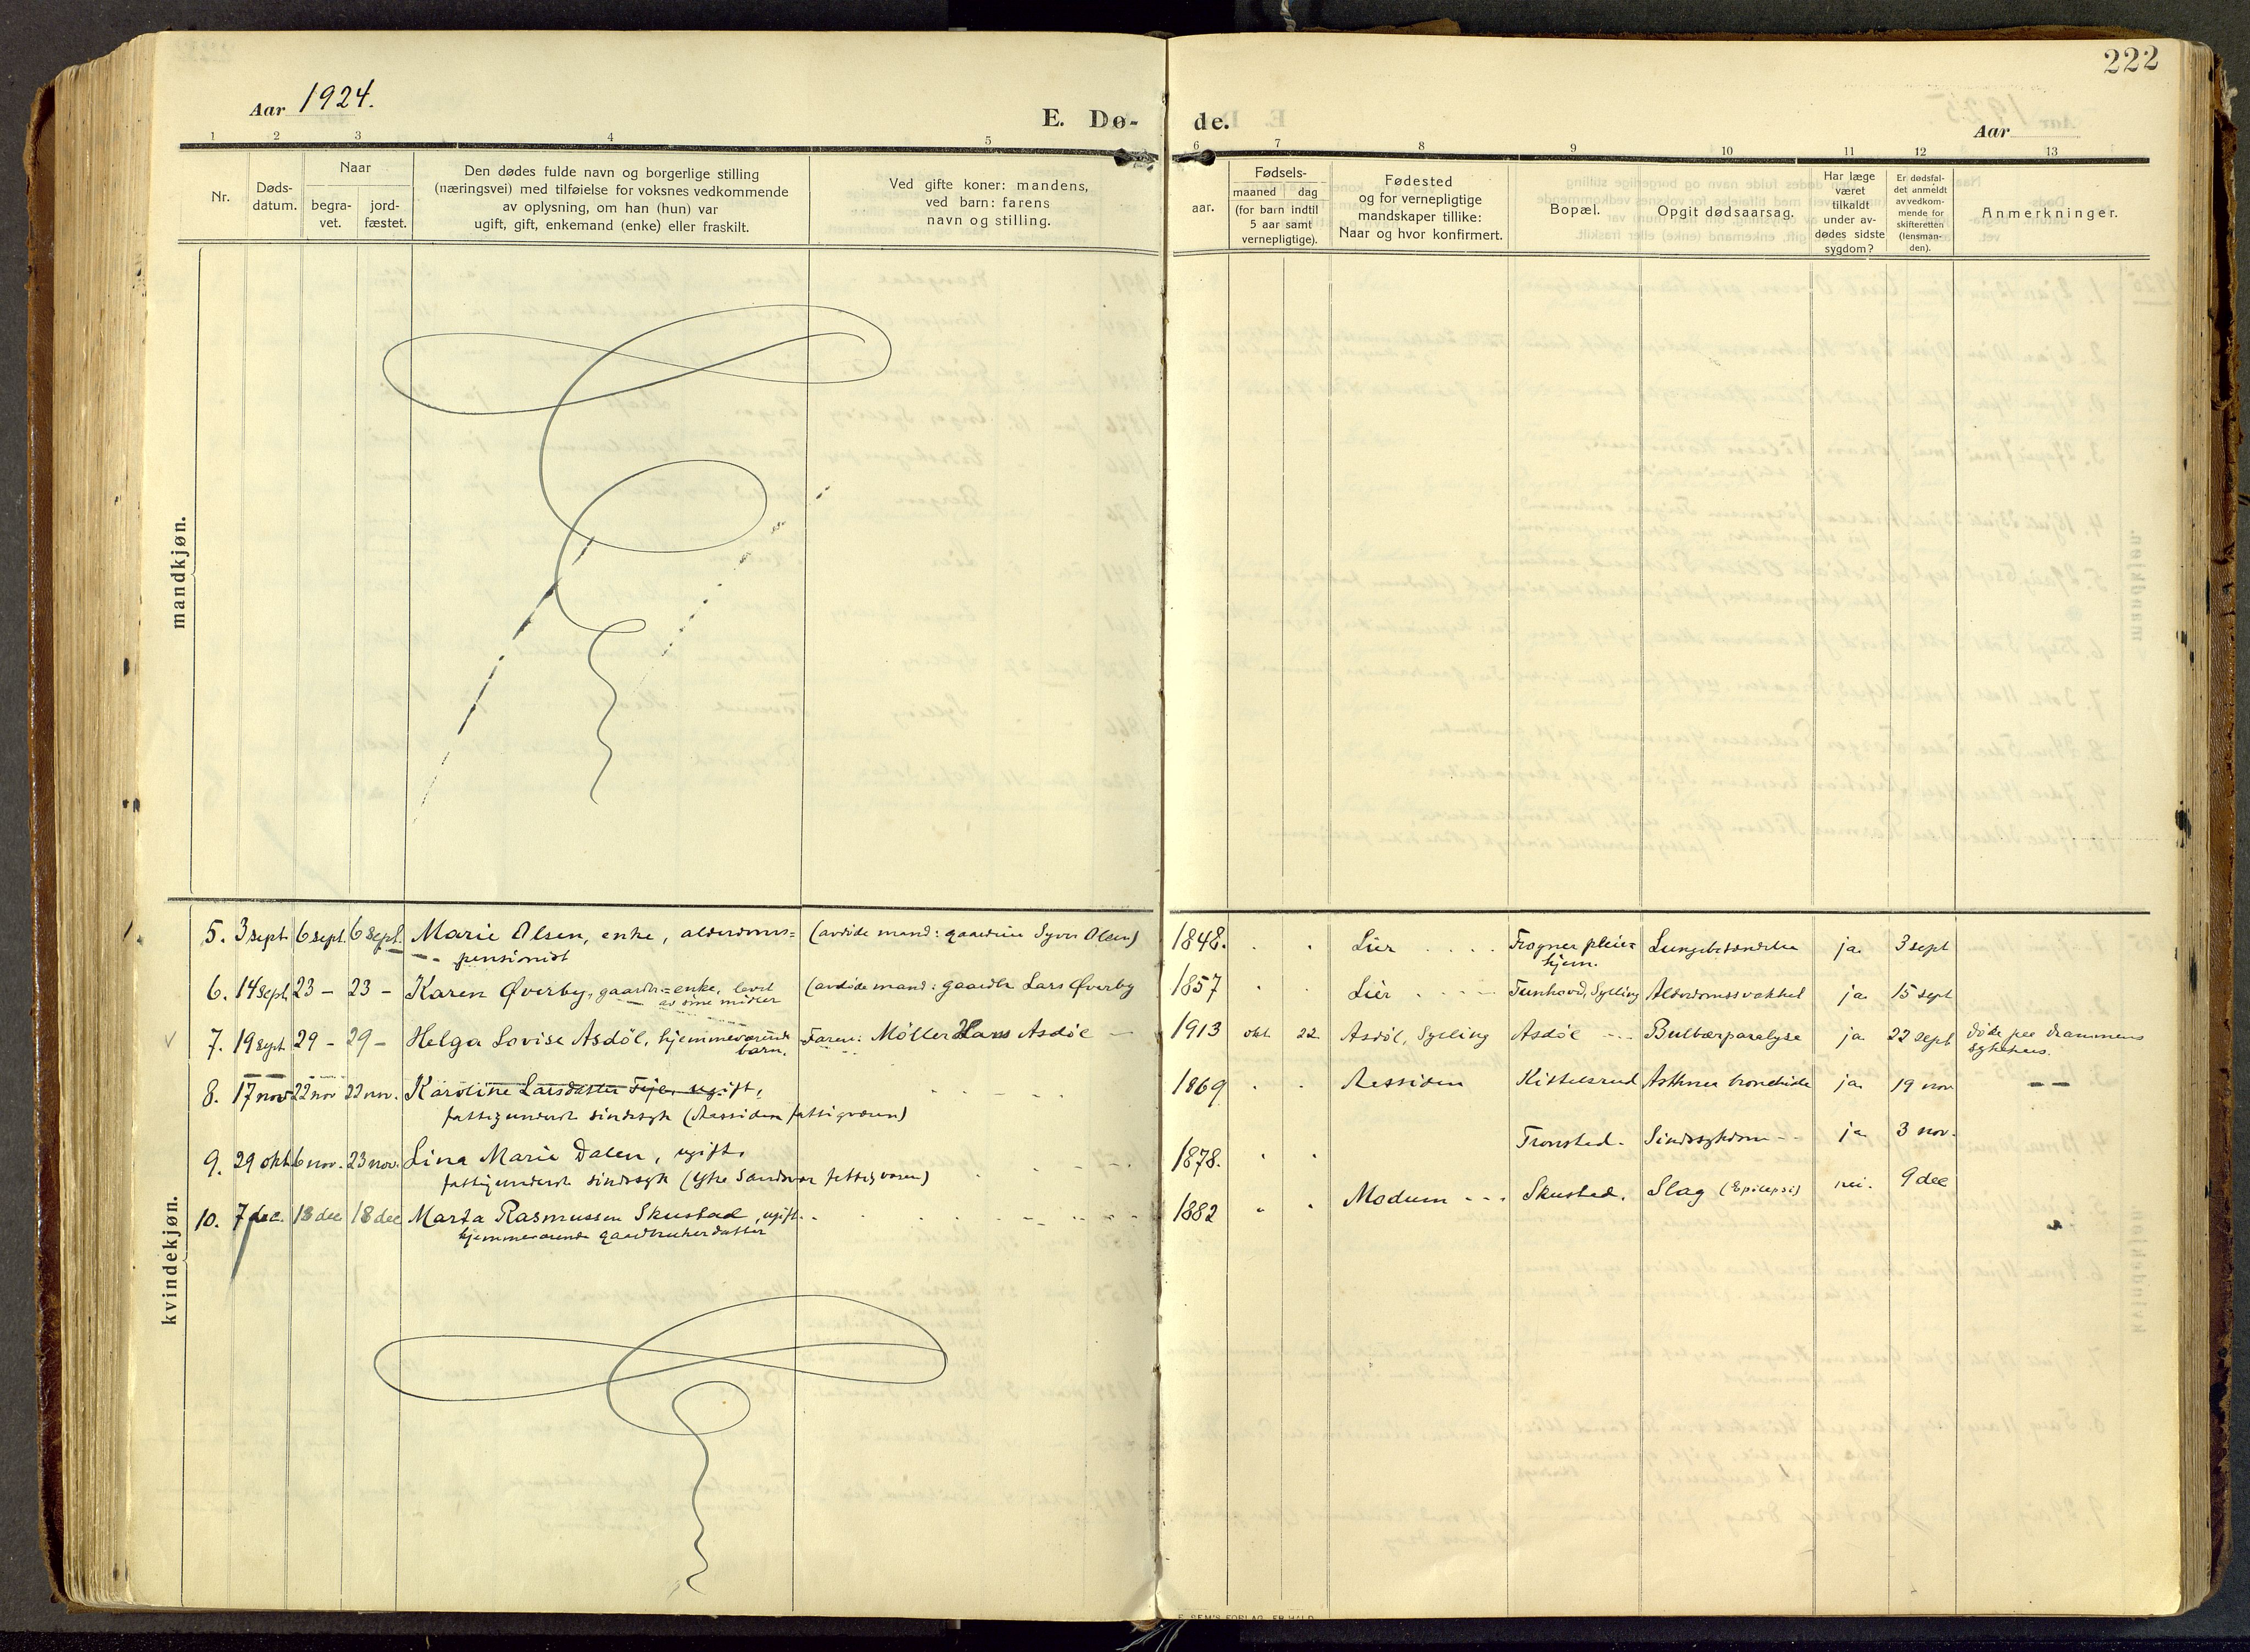 222
Aar 1924.
E. Dø-
de.
Aar
1 2 3 4 5
6 7 8 9 10 11 12 13
Nr.
Døds-
datum.
Naar
begra-
vet.
jord-
fæstet.
Den dødes fulde navn og borgerlige stilling
(næringsvei) med tilføielse for voksnes vedkommende
av oplysning, om han (hun) var
ugift, gift, enkemand (enke) eller fraskilt.
Ved gifte koner: mandens,
ved barn: farens
navn og stilling.
Fødsels-
aar.
maaned dag
(for barn indtil
5 aar samt
vernepligtige).
Fødested
og for vernepligtige
mandskaper tillike:
Naar og hvor konfirmert.
Bopæl.
Opgit dødsaarsag.
Har læge
været
tilkaldt
under av-
dødes sidste
sygdom?
Er dødsfal-
det anmeldt
av vedkom-
mende for
skifteretten
(lensman-
den).
Anmerkninger.
mandkjøn.
kvindekjøn.
5. 3 sept. 6 sept. 6 sept. Marie Olsen, enke, alderdoms= (avdøde mand: Syver Olsen) 1848. Lier Frogner pleie= Lungebetændelse ja 3 sept
pensionist hjem.
6. 14 sept 23 – 23 – Karen Øverby, gaardbr=enke, levet (avdøde mand: gaardbr Lars Øverby 1857 Lier Sylling Alderdomssvakhet ja 15 sept
av sine midler
7. 19 sept 29 – 29 – Helga Lovise Asdøl, hjemmeværende Faren: Møller Hans Asdøl 1913 okt 22 Asdøl, Sylling Asdøl Bulbærparalyse ja 22 sept Døde paa Drammens
barn. sykehus.
8. 17 nov 22 nov 22 nov. Karoline Larsdatter ugift, 1869 Aassiden Kittelsrud Asthma bronchide ja 19 nov
fattigunderst sindssyk (Aassiden fattigvæsen)
9. 29 okt 6 nov. 23 nov. Lina Marie Dalen, ugift. 1878. Tronstad. Sindssykdom ja 3 nov.
fattigunderst sindssyk (Ytre Sandsvær fattigvæsen)
10. 7 dec. 18 dec 18 dec Marta Rasmussen Skustad, ugift. 1882 Modum Skustad. Slag (Epilepsi) nei. 9 dec
hjemmeværende gaardbrukerdatter